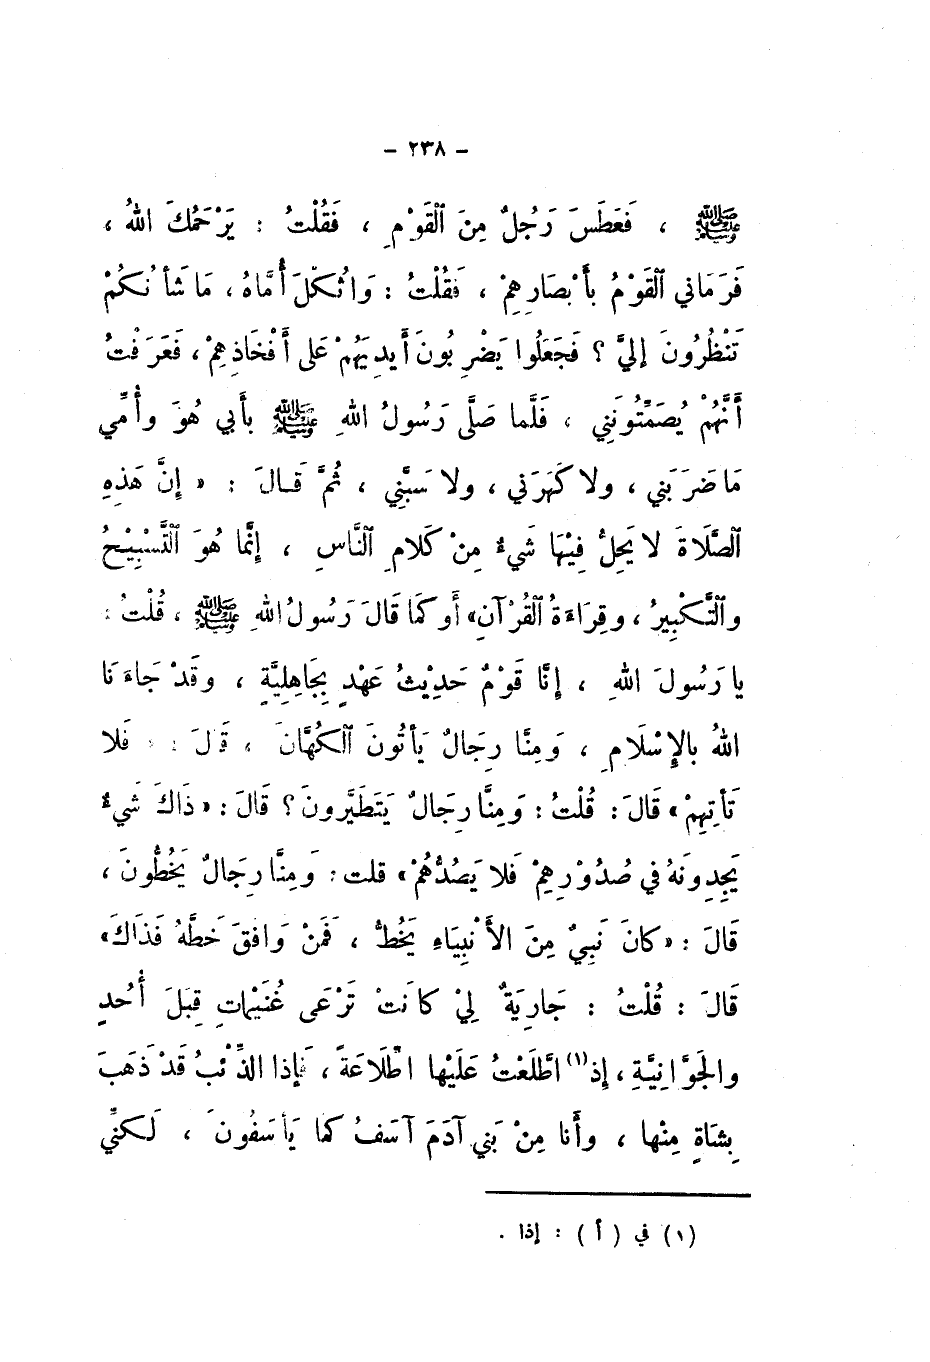 - ٢٣٨ -
ﷺ ، فَعَطَسَ رَجُلٌ مِنَ ٱلْقَوْمِ ، فَقُلْتُ : يَرْحَمُكَ اللهُ ،
فَرَمَاني ٱلْقَوْمُ بأَبْصَارِهِمْ ، فَقُلْتُ : وَاثُكْلَ أُمَّاهُ ، مَا شَأنُكُمْ
تَنْظُرُونَ إليَّ ؟ فَجَعَلُوا يَضْرِبُونَ أَيدِيَهُمْ عَلى أَفْخَاذِهِمْ ، فَعَرَفْتُ
أَنَّهُمْ يُصَمِّتُونَنِي ، فَلَّما صَلَّى رَسُولُ اللهِ ﷺ بأَبي هُوَ وأُمِّي
مَا ضَرَبَني ، ولا كَهَرَني ، ولا سَبَّنِي ، ثُمَّ قَـالَ : « إِنَّ هَذِهِ
ٱلصَّلَاةَ لا يَحِلُّ فِيْهَا شَيءٌ مِنْ كَلامِ ٱلنَّاسِ ، إِنَّما هُوَ ٱلتَّسْبِيْحُ
وٱلتَّكْبِيرُ ، وقِرَاءَةُ ٱلقُرْآنِ» أَو كَمَا قَالَ رَسُولُ اللهِ ﷺ ، قُلْتُ :
يا رَسُولَ اللهِ ، إِنَّا قَوْمٌ حَدِيْثُ عَهْدٍ بِجَاهِلِيَّةٍ ، وقَدْ جَاءَنَا
اللهُ بالإِسْلَامِ ، وَمِنَّا رِجَالٌ يَأتُونَ ٱلكُهَّانَ ، قَالَ : « فَلا
تَأتِهِمْ» قَالَ : قُلْتُ : وَمِنَّا رِجَالٌ يَتَطَيَّرونَ ؟ قَالَ : « ذَاكَ شَيءٌ
يَجِدِونَهُ في صُدُوْرِهِمْ فَلا يَصُدُّهُمْ» قلت : وَمِنَّا رِجَالٌ يَخُطُّونَ ،
قَالَ : «كانَ نَبِيٌ مِنَ الأَنْبِيَاءِ يَخُطُّ ، فَمَنْ وَافَقَ خَطَّهُ فَذَاكَ»
قَالَ : قُلْتُ : جَارِيَةٌ لِيْ كانَتْ تَرْعَى غُنَيْمَاتٍ قِبَلَ أُحُدٍ
والجَوَّانِيَّةِ ، إِذ(١) اطَّلَعْتُ عَلَيْها اطّلَاعَةً ، فإِذا الذِّئْبُ قَدْ ذَهَبَ
بِشَاةٍ مِنْها ، وأَنا مِنْ بَني آدَمَ آسَفُ كما يَأسَفُونَ ، لَكنِّي
(١) في ( أ ) : إذا .